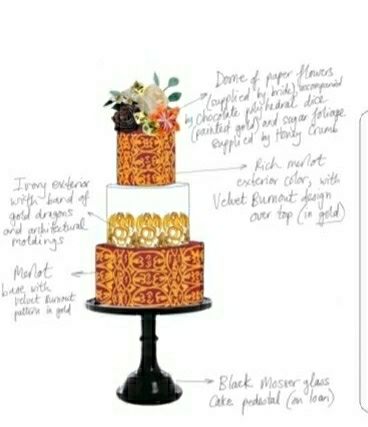 Dome of paper flowers
(supplied by bride) accompanied
by chocolate polyhedral dice
(painted gold) and sugar foliage
supplied by Honey Crumb
Rich merlot
exterior color, with
Velvet Burnout design
over top (in gold)
Ivory exterior
with band of
gold dragons
and architectural
moldings
Merlot
base with
Velvet Burnout
pattern in gold
Black Mosser glass
Cake pedestal (on loan)